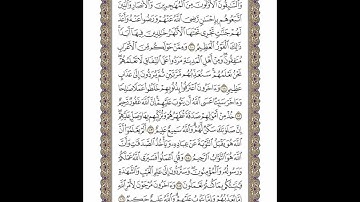 وَالسَّابِقُونَ الْأَوَّلُونَ مِنَ الْمُهَاجِرِينَ وَالْأَنصَارِ وَالَّذِينَ
اتَّبَعُوهُم بِإِحْسَانٍ رَّضِيَ اللَّهُ عَنْهُمْ وَرَضُوا عَنْهُ وَأَعَدَّ
لَهُمْ جَنَّاتٍ تَجْرِي تَحْتَهَا الْأَنْهَارُ خَالِدِينَ فِيهَا أَبَدًا
ذَٰلِكَ الْفَوْزُ الْعَظِيمُ ١٠٠ وَمِمَّنْ حَوْلَكُم مِّنَ الْأَعْرَابِ
مُنَافِقُونَ وَمِنْ أَهْلِ الْمَدِينَةِ مَرَدُوا عَلَى النِّفَاقِ لَا تَعْلَمُهُمْ
نَحْنُ نَعْلَمُهُمْ سَنُعَذِّبُهُم مَّرَّتَيْنِ ثُمَّ يُرَدُّونَ إِلَىٰ عَذَابٍ
عَظِيمٍ ١٠١ وَآخَرُونَ اعْتَرَفُوا بِذُنُوبِهِمْ خَلَطُوا عَمَلًا صَالِحًا
وَآخَرَ سَيِّئًا عَسَى اللَّهُ أَن يَتُوبَ عَلَيْهِمْ إِنَّ اللَّهَ غَفُورٌ رَّحِيمٌ
١٠٢ خُذْ مِنْ أَمْوَالِهِمْ صَدَقَةً تُطَهِّرُهُمْ وَتُزَكِّيهِم بِهَا وَصَلِّ عَلَيْهِمْ
إِنَّ صَلَاتَكَ سَكَنٌ لَّهُمْ وَاللَّهُ سَمِيعٌ عَلِيمٌ ١٠٣ أَلَمْ يَعْلَمُوا أَنَّ
اللَّهَ هُوَ يَقْبَلُ التَّوْبَةَ عَنْ عِبَادِهِ وَيَأْخُذُ الصَّدَقَاتِ وَأَنَّ
اللَّهَ هُوَ التَّوَّابُ الرَّحِيمُ ١٠٤ وَقُلِ اعْمَلُوا فَسَيَرَى اللَّهُ عَمَلَكُمْ
وَرَسُولُهُ وَالْمُؤْمِنُونَ وَسَتُرَدُّونَ إِلَىٰ عَالِمِ الْغَيْبِ وَالشَّهَادَةِ
فَيُنَبِّئُكُم بِمَا كُنتُمْ تَعْمَلُونَ ١٠٥ وَآخَرُونَ مُرْجَوْنَ لِأَمْرِ اللَّهِ
إِمَّا يُعَذِّبُهُمْ وَإِمَّا يَتُوبُ عَلَيْهِمْ وَاللَّهُ عَلِيمٌ حَكِيمٌ ١٠٦